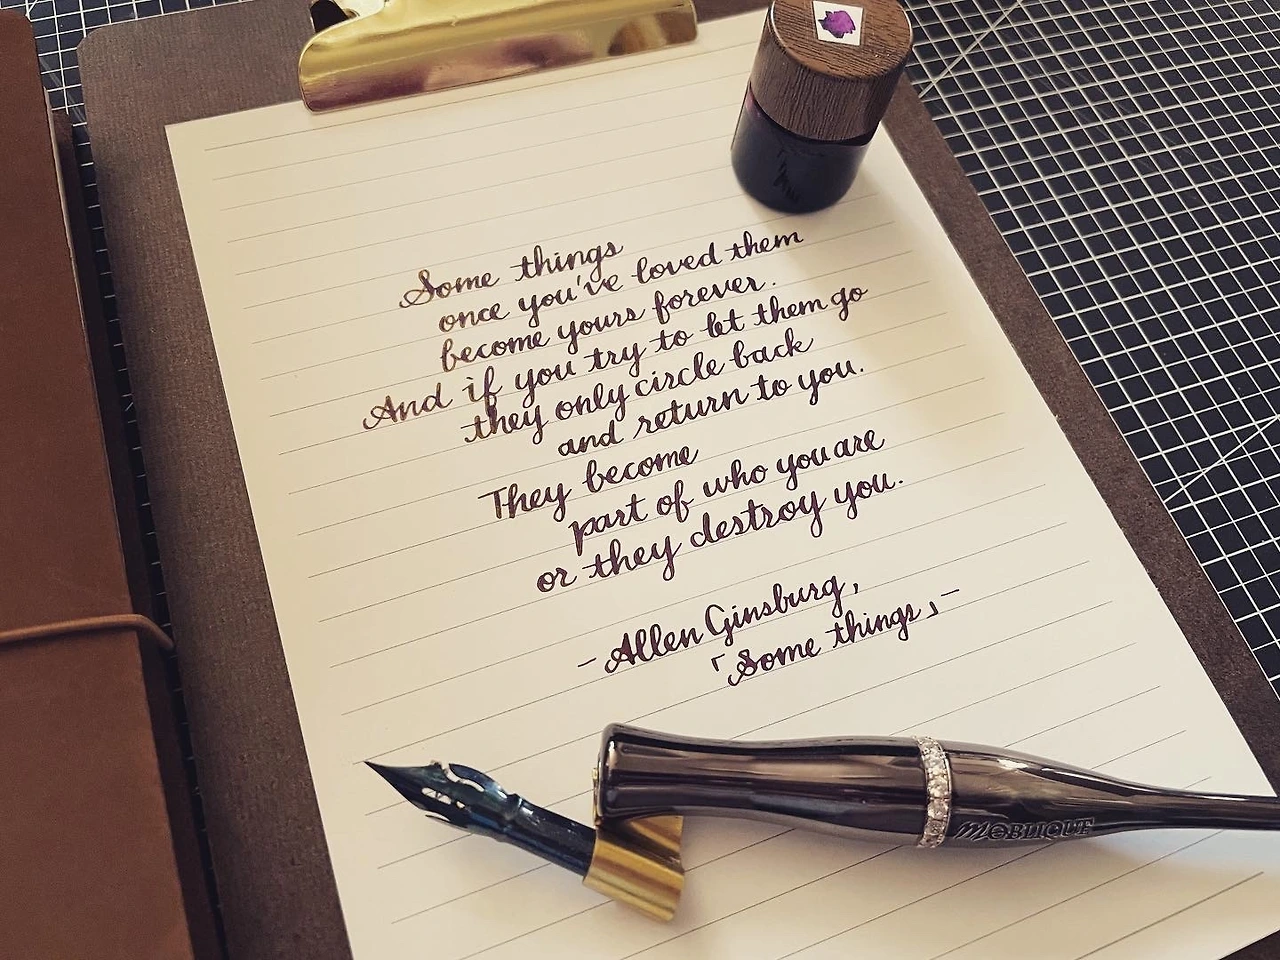 Some things
once you've loved them
become yours forever.
And if you try to let them go
they only circle back
and return to you.
They become
part of who you are
or they destroy you.
- Allen Ginsburg,
「Some things」-
MOBLIQUE